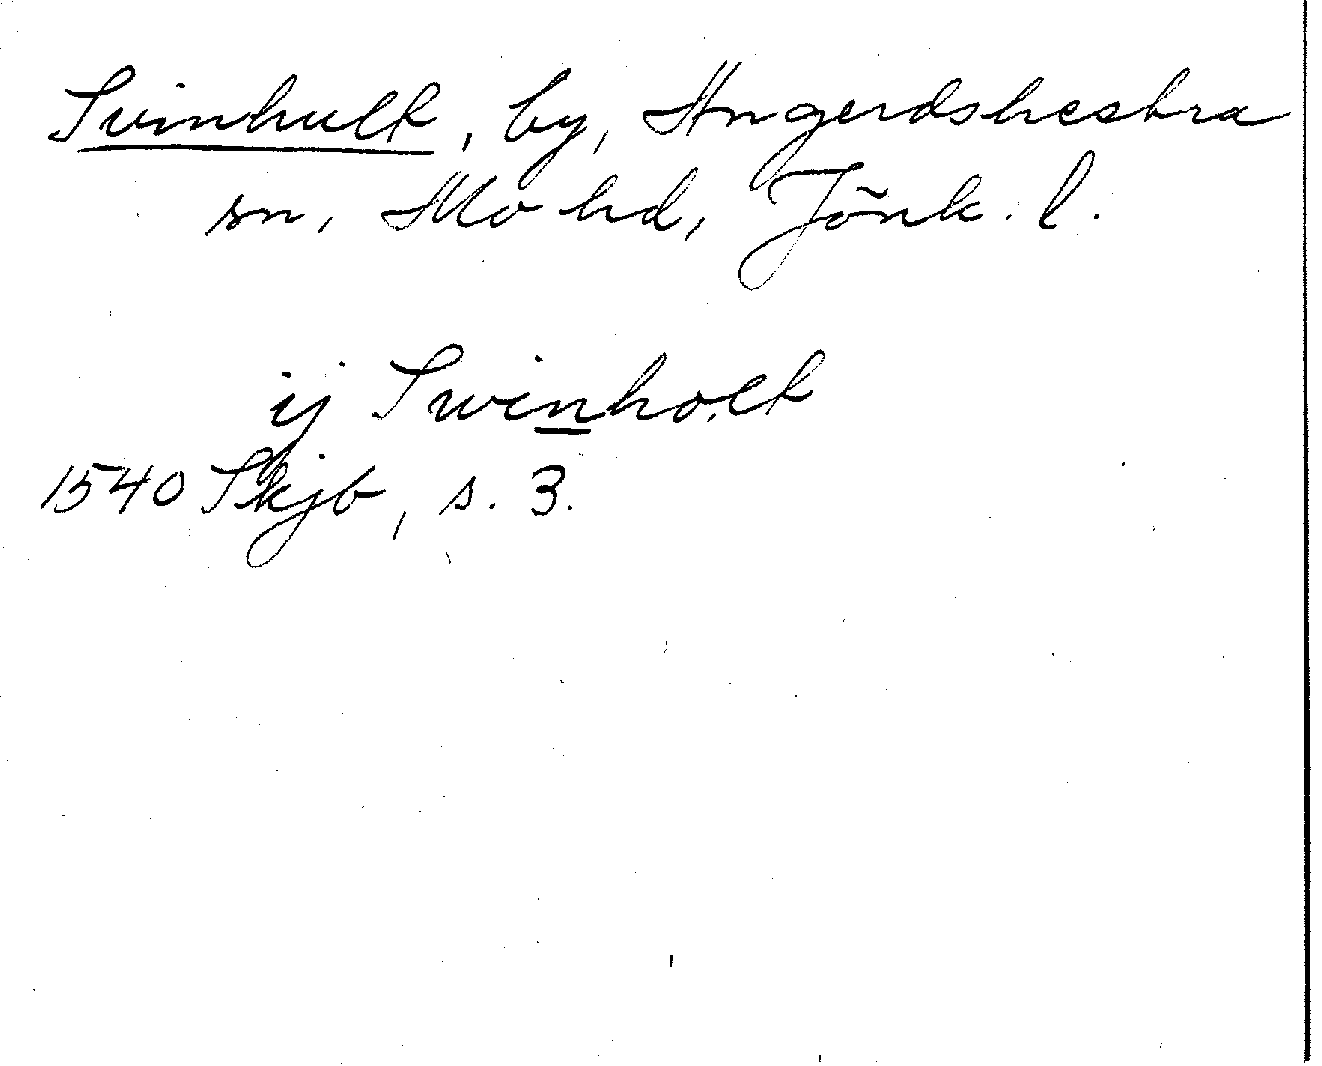 Svinhult, by, Angerdshestra
sn, Mo hd, Jönk. l.
ij Swinholt
1540 Skjb, s. 3.